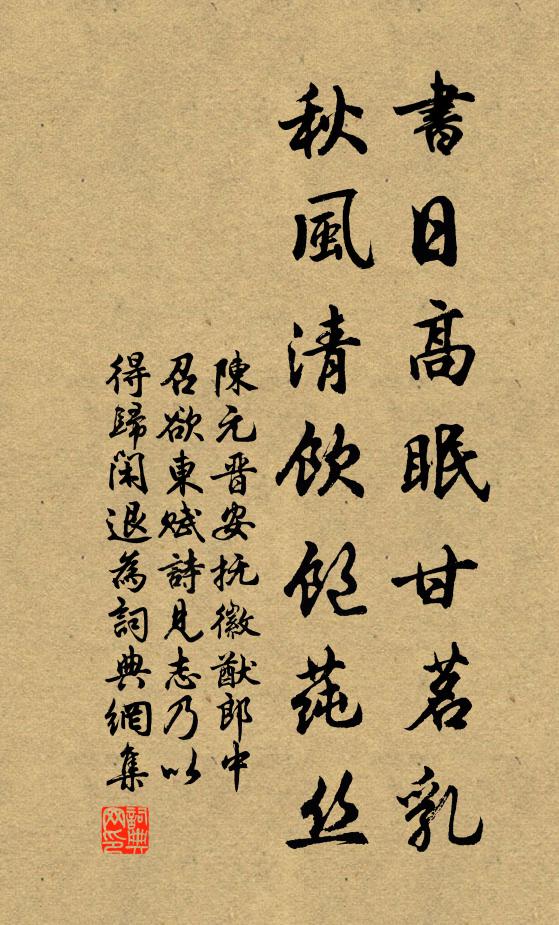 書日高眠甘茗乳
秋風清飲飽蒓丝
陳元晋安抚徽猷郎中
召欲東赋詩見志乃以
得歸闲退為詞典網集
詞典网印